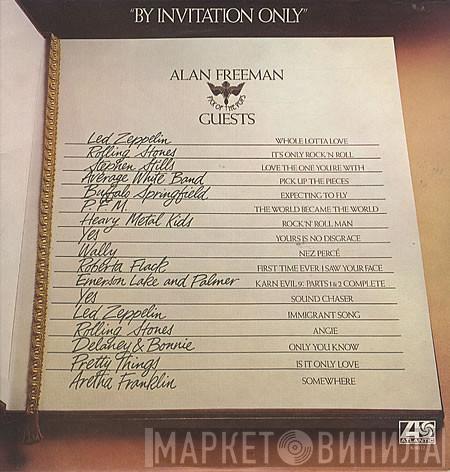 "BY INVITATION ONLY"
ALAN FREEMAN
GUESTS
Led Zeppelin WHOLE LOTTA LOVE
Rolling Stones IT'S ONLY ROCK 'N ROLL
Stephen Stills LOVE THE ONE YOU'RE WITH
Average White Band PICK UP THE PIECES
Buffalo Springfield EXPECTING TO FLY
P.F.M. THE WORLD BECAME THE WORLD
Heavy Metal Kids ROCK'N'ROLL MAN
Yes YOURS IS NO DISGRACE
Wally NEZ PERCÉ
Roberta Flack FIRST TIME EVER I SAW YOUR FACE
Emerson Lake and Palmer KARN EVIL 9: PARTS 1 & 2 COMPLETE
Yes SOUND CHASER
Led Zeppelin IMMIGRANT SONG
Rolling Stones ANGIE
Delaney & Bonnie ONLY YOU KNOW
Pretty Things IS IT ONLY LOVE
Aretha Franklin SOMEWHERE
МАРКЕТ ВИНИЛА